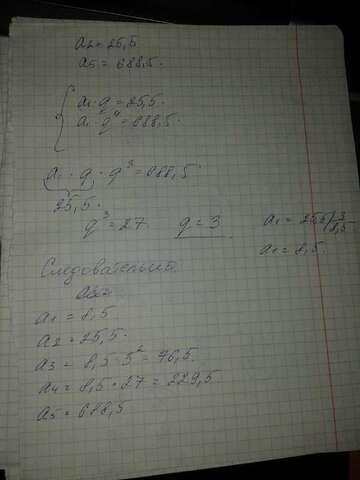 a₂ = 25,5.
a₅ = 688,5.
{ a₁ · q = 25,5.
a₁ · q⁴ = 688,5.
a₁ · q · q³ = 688,5.
25,5.
q³ = 27. q = 3
a₁ = 8,5.
Следовательно
a₁ = 8,5
a₂ = 25,5.
a₃ = 8,5 · 3² = 76,5.
a₄ = 8,5 · 27 = 229,5
a₅ = 688,5